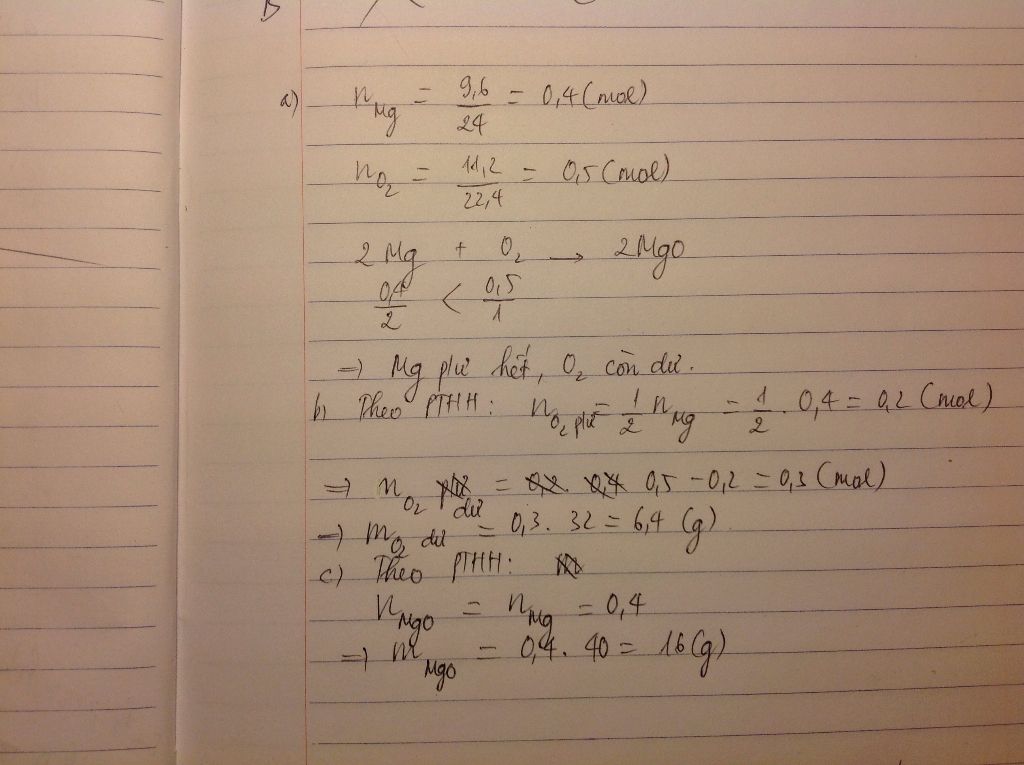 a) n Mg = 9,6/24 = 0,4 (mol)
n O2 = 11,2/22,4 = 0,5 (mol)
2Mg + O2 → 2MgO
0,4/2 < 0,5/1
=> Mg pứ hết, O2 còn dư.
b) Theo PTHH: n O2 pứ = 1/2 n Mg = 1/2 . 0,4 = 0,2 (mol)
=> n O2 dư = 0,5 - 0,2 = 0,3 (mol)
=> m O2 dư = 0,3 . 32 = 6,4 (g)
c) Theo PTHH:
n MgO = n Mg = 0,4
=> m MgO = 0,4 . 40 = 16 (g)